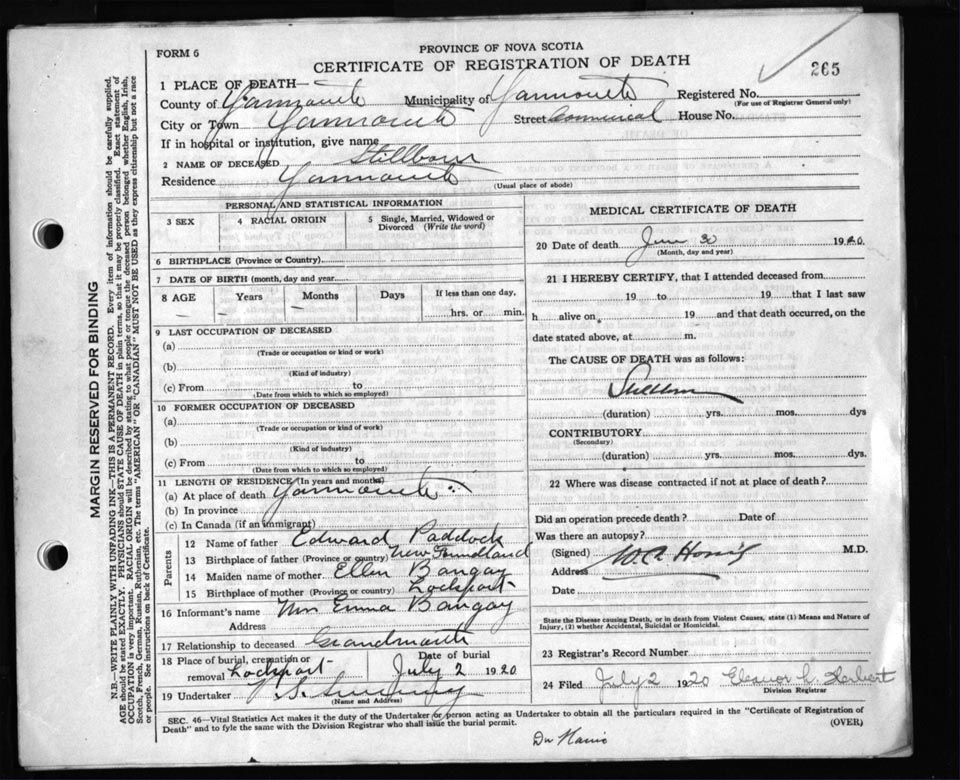 FORM 6
PROVINCE OF NOVA SCOTIA
CERTIFICATE OF REGISTRATION OF DEATH
265
1 PLACE OF DEATH—
County of Yarmouth Municipality of Yarmouth Registered No.
(For use of Registrar General only)
City or Town Yarmouth Street Commercial House No.
If in hospital or institution, give name
2 NAME OF DECEASED Stillborn
Residence Yarmouth
(Usual place of abode)
PERSONAL AND STATISTICAL INFORMATION
3 SEX 4 RACIAL ORIGIN 5 Single, Married, Widowed or Divorced (Write the word)
6 BIRTHPLACE (Province or Country)
7 DATE OF BIRTH (month, day and year
8 AGE Years Months Days If less than one day,
hrs. or min.
9 LAST OCCUPATION OF DECEASED
(a)
(Trade or occupation or kind or work)
(b)
(Kind of industry)
(c) From to
(Date from which to which so employed)
10 FORMER OCCUPATION OF DECEASED
(a)
(Trade or occupation or kind of work)
(b)
(Kind of industry)
(c) From to
(Date from which to which so employed)
11 LENGTH OF RESIDENCE (In years and months)
(a) At place of death Yarmouth
(b) In province
(c) In Canada (if an immigrant)
Parents
12 Name of father Edward Paddock
13 Birthplace of father (Province or country) New Foundland
14 Maiden name of mother Ellen Bangay
15 Birthplace of mother (Province or country) Lockport
16 Informant's name Mrs Emma Bangay
Address
17 Relationship to deceased Grandmouth
18 Place of burial, cremation or removal Lockport Date of burial July 2 1920
19 Undertaker
(Name and Address)
MEDICAL CERTIFICATE OF DEATH
20 Date of death June 30 1920
(Month, day and year)
21 I HEREBY CERTIFY, that I attended deceased from
19 to 19 that I last saw
h alive on 19 and that death occurred, on the
date stated above, at m.
The CAUSE OF DEATH was as follows:
Stillborn
(duration) yrs. mos. dys
CONTRIBUTORY
(Secondary)
(duration) yrs. mos. dys.
22 Where was disease contracted if not at place of death?
Did an operation precede death? Date of
Was there an autopsy?
(Signed) M.D.
Address
Date
State the Disease causing Death, or in death from Violent Causes, state (1) Means and Nature of Injury, (2) whether Accidental, Suicidal or Homicidal.
23 Registrar's Record Number
24 Filed July 2 1920 Eleanor L. Harbert
Division Registrar
SEC. 46—Vital Statistics Act makes it the duty of the Undertaker or person acting as Undertaker to obtain all the particulars required in the "Certificate of Registration of
Death" and to fyle the same with the Division Registrar who shall issue the burial permit.
(OVER)
MARGIN RESERVED FOR BINDING
N.B.—WRITE PLAINLY WITH UNFADING INK—THIS IS A PERMANENT RECORD. Every item of information should be carefully supplied.
AGE should be stated EXACTLY. PHYSICIANS should STATE CAUSE OF DEATH in plain terms, so that it may be properly classified. Exact statement of
OCCUPATION is very important. RACIAL ORIGIN will be described by stating to what people or tongue the deceased person belonged whether English, Irish,
Scotch, French, German, Russian, Ruthenian, etc. The terms "AMERICAN" OR "CANADIAN" MUST NOT BE USED as they express citizenship but not a race
or people. See instructions on back of Certificate.